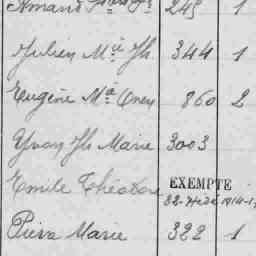 Armand 245 1
Julien Mie Jh 344 1
Eugène Ma 860 2
Yvon Jh Marie 3003
Emile Théodore EXEMPTE
1914-1
Pierre Marie 332 1